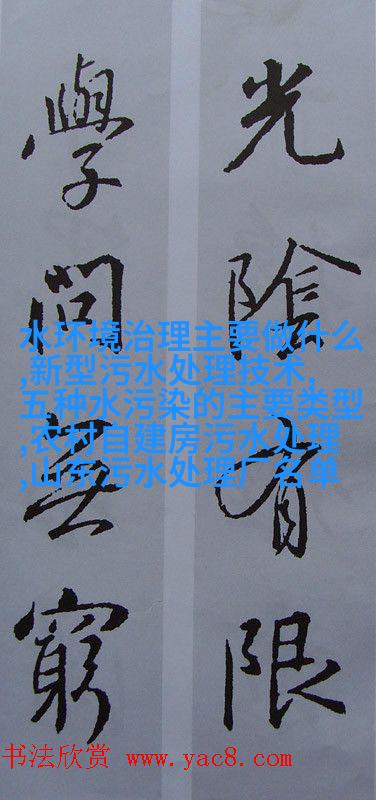 光陰有限
學問無窮
水环境治理主要做什么
,新型污水处理技术,
五种水污染的主要类型
,农村自建房污水处理
,山东污水处理厂名单
书法欣赏 www.yac8.com